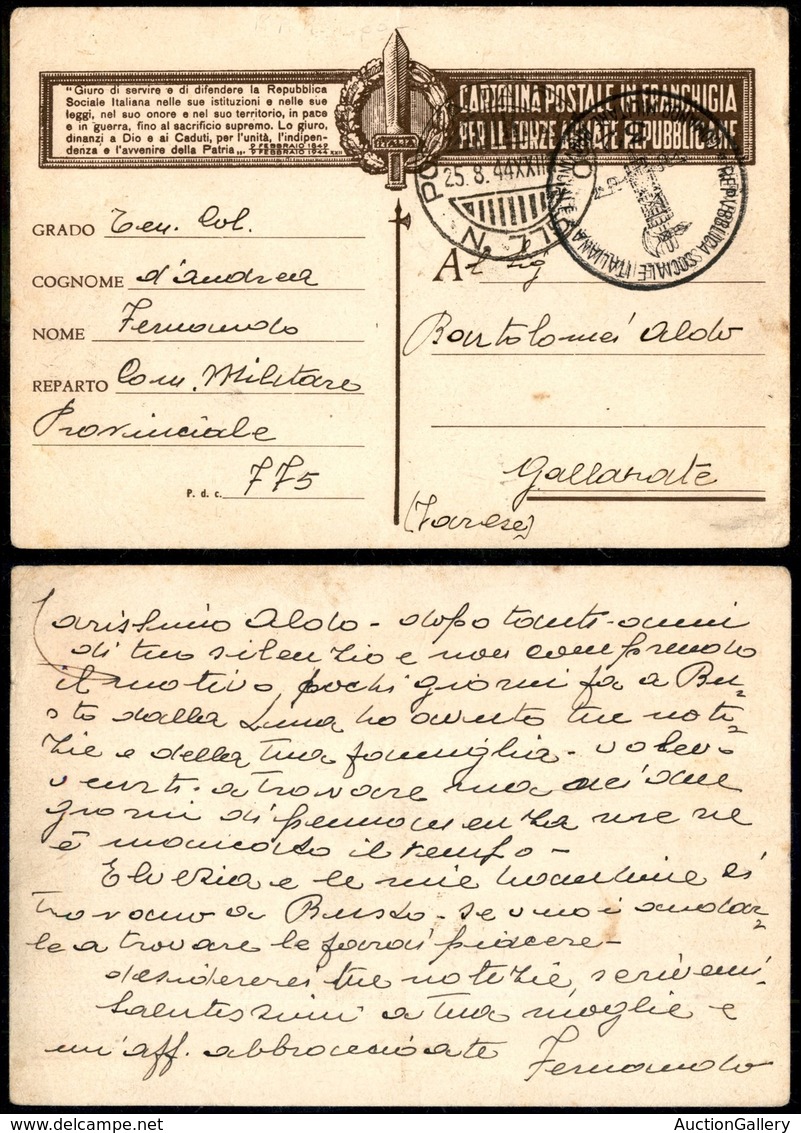 "Giuro di servire e di difendere la Repubblica
Sociale Italiana nelle sue istituzioni e nelle sue
leggi, nel suo onore e nel suo territorio, in pace
e in guerra, fino al sacrificio supremo. Lo giuro,
dinanzi a Dio e ai Caduti, per l'unità, l'indipen-
denza e l'avvenire della Patria„
9 FEBBRAIO 1849
9 FEBBRAIO 1944 XXII
ITALIA
CARTOLINA POSTALE IN FRANCHIGIA
PER LE FORZE ARMATE REPUBBLICANE
25.8.44XXII
REPUBBLICA SOCIALE ITALIANA
GRADO Ten. Col.
COGNOME d'Andrea
NOME Fernando
REPARTO Com. Militare
Provinciale
P. d. c. 775
Al Sig
Bartolomei Aldo
Gallarate
(Varese)
Carissimo Aldo - dopo tanti anni
di tuo silenzio e non comprendo
il motivo, pochi giorni fa a Bu=
sto dalla Lina ho avuto tue noti=
zie e della tua famiglia - volevo
venirti a trovare ma nei due
giorni di permanenza me ne
è mancato il tempo -
Elvezia e le mie bambine si
trovano a Busto - se vuoi andar=
le a trovare le farai piacere -
desidererei tue notizie, scrivemi.
Salutissimi a tua moglie e
un'aff. abbracciate Fernando
AuctionGallery